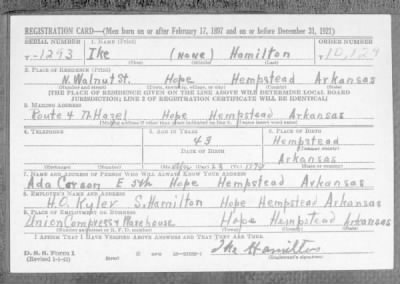 REGISTRATION CARD—(Men born on or after February 17, 1897 and on or before December 31, 1921)
SERIAL NUMBER 1. NAME (Print) ORDER NUMBER
T-1293 Ike (None) Hamilton 10,129
(First) (Middle) (Last)
2. PLACE OF RESIDENCE (Print)
N. Walnut St. Hope Hempstead Arkansas
(Number and street) (Town, township, village, or city) (County) (State)
[THE PLACE OF RESIDENCE GIVEN ON THE LINE ABOVE WILL DETERMINE LOCAL BOARD
JURISDICTION; LINE 2 OF REGISTRATION CERTIFICATE WILL BE IDENTICAL]
3. MAILING ADDRESS
Route 4 Hazel Hope Hempstead Arkansas
[Mailing address if other than place indicated on line 2. If same insert word same]
4. TELEPHONE 5. AGE IN YEARS 6. PLACE OF BIRTH
43 Hempstead
DATE OF BIRTH (Town or county)
23 Arkansas
(Exchange) (Number) (Mo.) (Day) (Yr.) (State or country)
7. NAME AND ADDRESS OF PERSON WHO WILL ALWAYS KNOW YOUR ADDRESS
Ada Carson E 5th Hope Hempstead Arkansas
8. EMPLOYER'S NAME AND ADDRESS
H.O. Kyler S. Hamilton Hope Hempstead Arkansas
9. PLACE OF EMPLOYMENT OR BUSINESS
Union Compress & Warehouse Hope Hempstead Arkansas
(Number and street or R. F. D. number) (Town) (County) (State)
I AFFIRM THAT I HAVE VERIFIED ABOVE ANSWERS AND THAT THEY ARE TRUE.
D. S. S. Form 1 Ike Hamilton
(Registrant's signature)